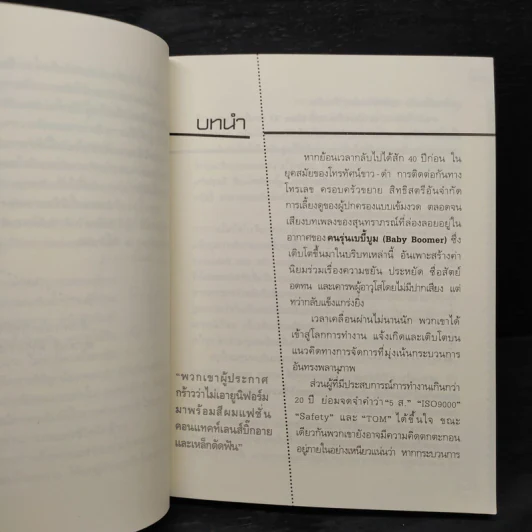 บทนำ
หากย้อนเวลากลับไปได้สัก 40 ปีก่อน ใน
ยุคสมัยของโทรทัศน์ขาว-ดำ การติดต่อกันทาง
โทรเลข ครอบครัวขยาย สิทธิสตรีอันจำกัด
การเลี้ยงดูของผู้ปกครองแบบเข้มงวด ตลอดจน
เสียงบทเพลงของสุนทราภรณ์ที่ล่องลอยอยู่ใน
อากาศของคนรุ่นเบบี้บูม (Baby Boomer) ซึ่ง
เติบโตขึ้นมาในบริบทเหล่านี้ อันเพาะสร้างค่า
นิยมร่วมเรื่องความขยัน ประหยัด ซื่อสัตย์
อดทน และเคารพผู้อาวุโสโดยไม่มีปากเสียง แต่
ทว่ากลับแข็งแกร่งยิ่ง
เวลาเคลื่อนผ่านไม่นานนัก พวกเขาได้
เข้าสู่โลกการทำงาน แจ้งเกิดและเติบโตบน
แนวคิดทางการจัดการที่มุ่งเน้นกระบวนการ
อันทรงพลานุภาพ
ส่วนผู้ที่มีประสบการณ์การทำงานเกินกว่า
20 ปี ย่อมจดจำคำว่า "5 ส." "ISO9000"
"Safety" และ "TQM" ได้ขึ้นใจ ขณะ
เดียวกันพวกเขายังอาจมีความคิดตกตะกอน
อยู่ภายในอย่างเหนียวแน่นว่า หากกระบวนการ
"พวกเขาผู้ประกาศ
กร้าวว่าไม่เอายูนิฟอร์ม
มาพร้อมสีผมแฟชั่น
คอนแทคท์เลนส์บิ๊กอาย
และเหล็กดัดฟัน"